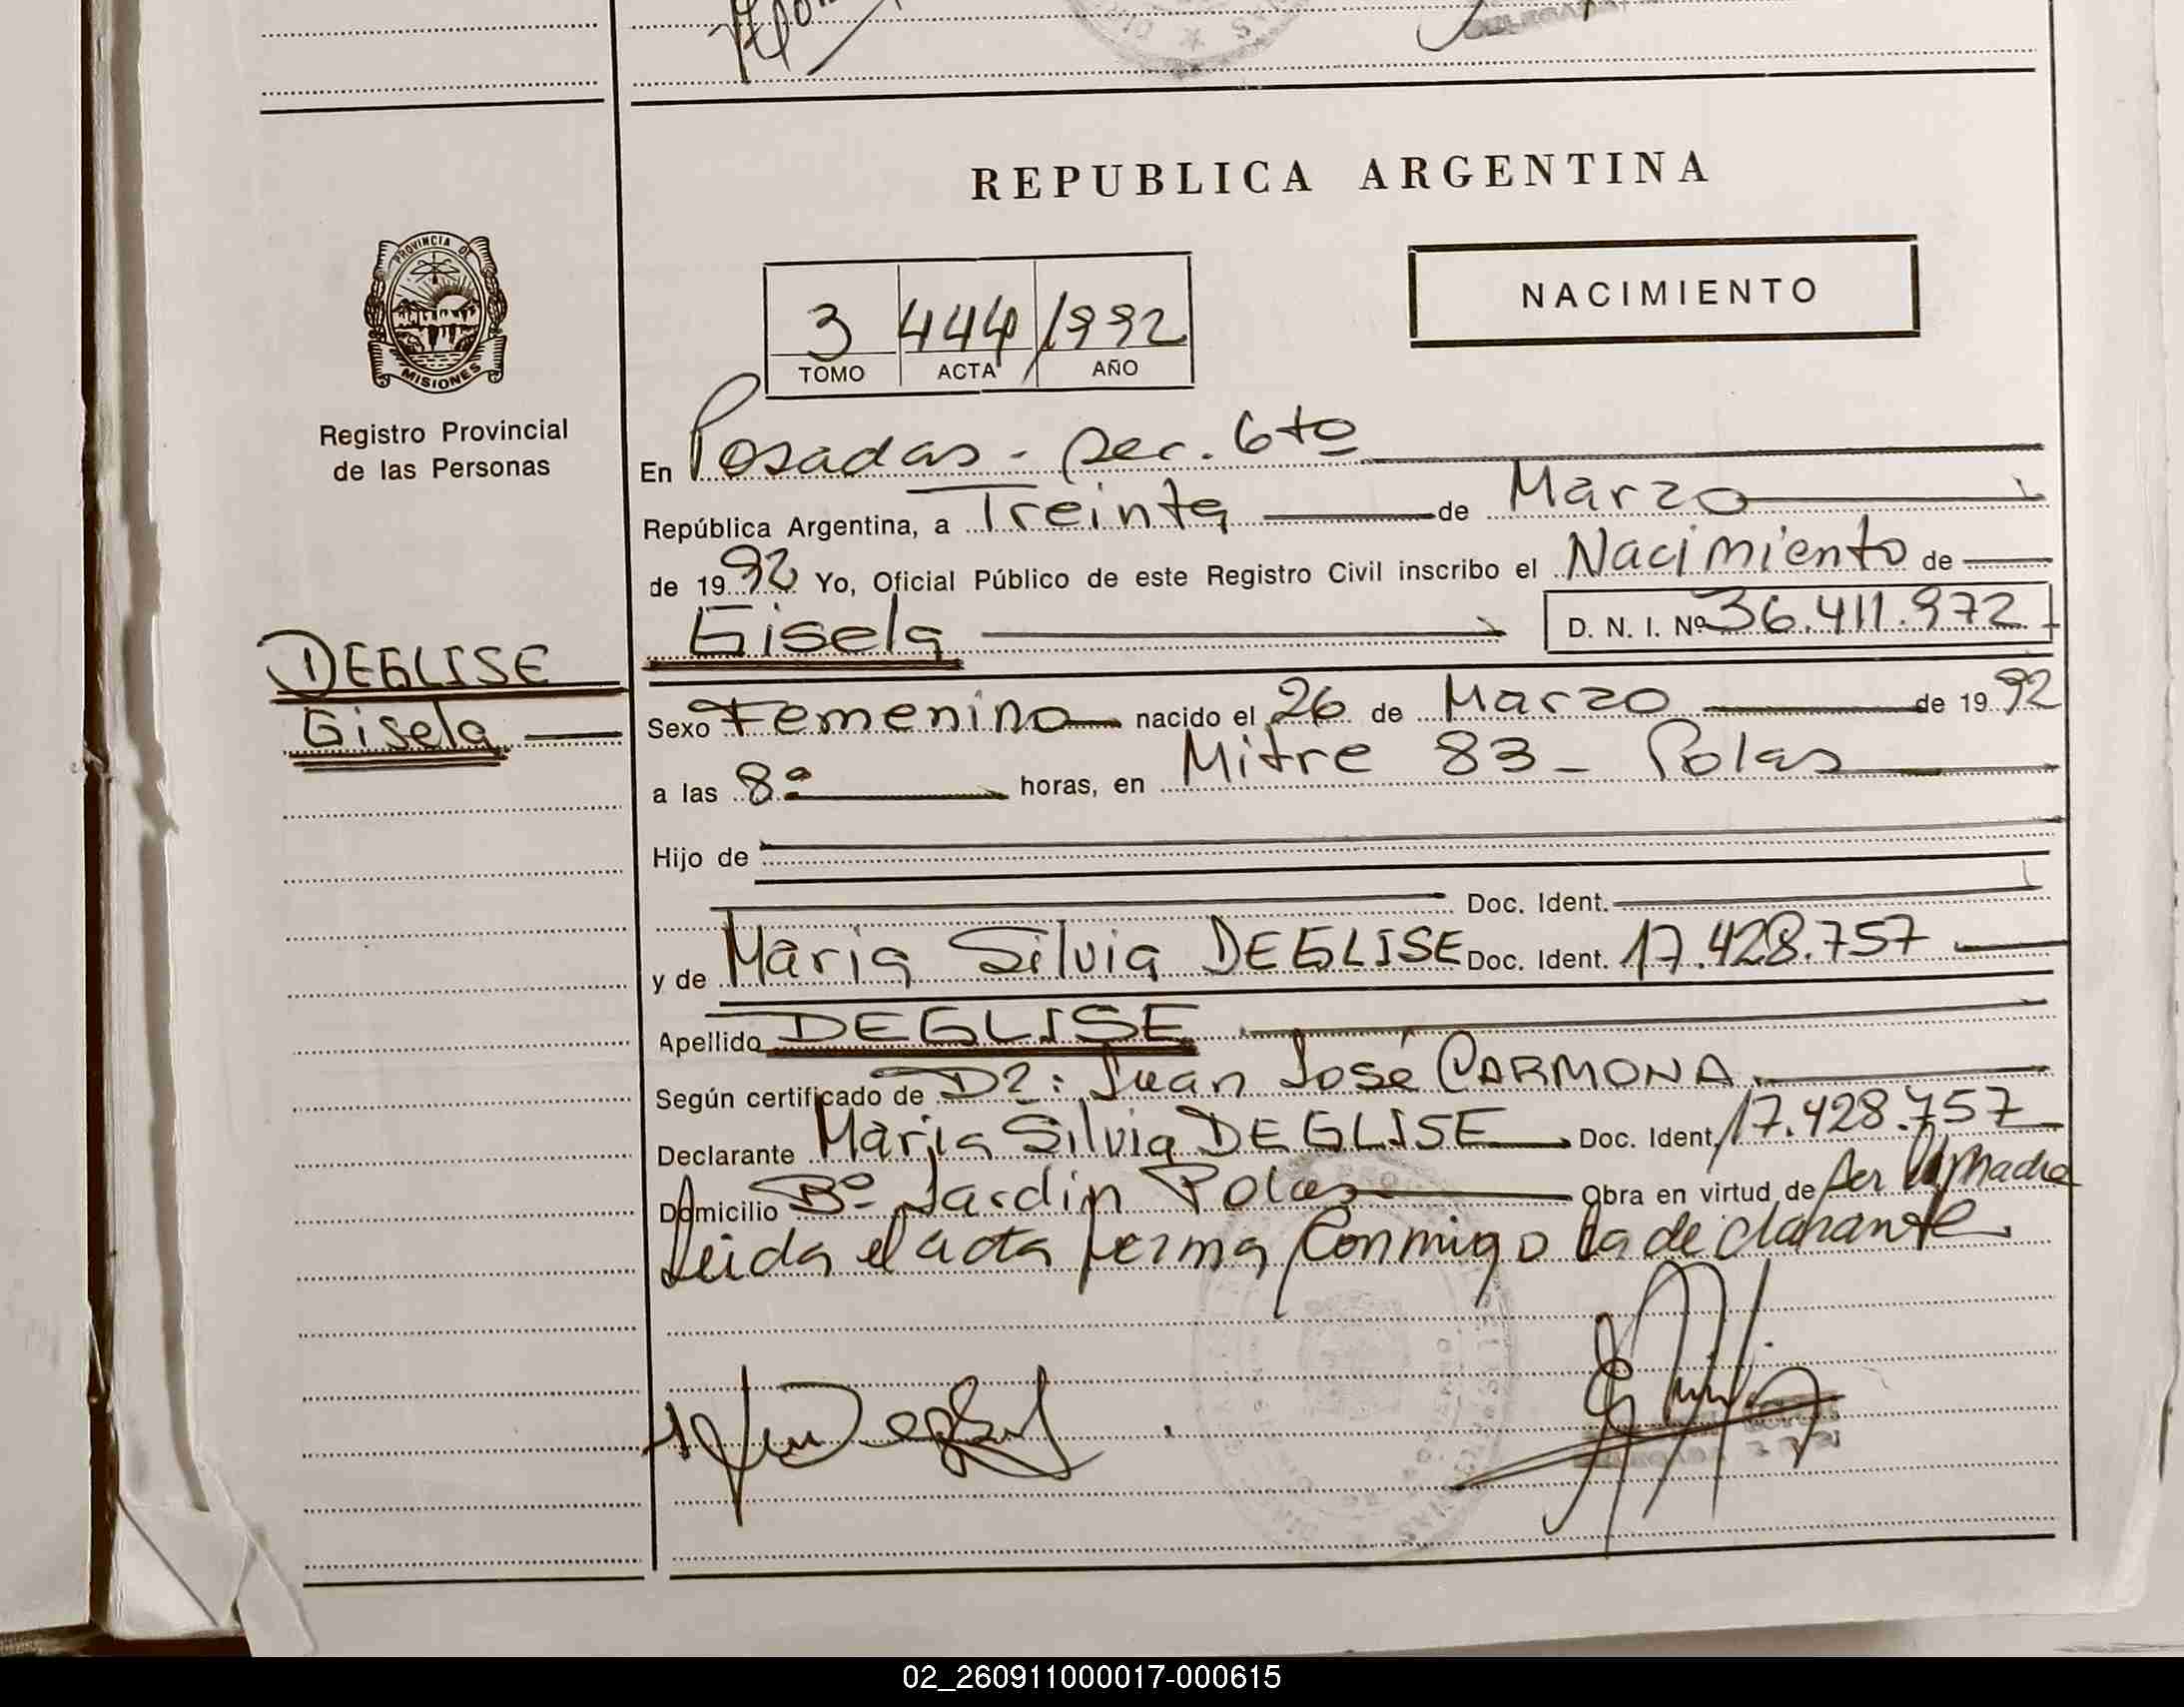 REPUBLICA ARGENTINA
NACIMIENTO
3 444 1992
TOMO ACTA AÑO
PROVINCIA DE
MISIONES
Registro Provincial
de las Personas
DEGLISE
Gisela
En Posadas - sec. 6to
República Argentina, a Treinta de Marzo
de 1992 Yo, Oficial Público de este Registro Civil inscribo el Nacimiento de
Gisela D. N. I. Nº 36.411.972
Sexo Femenino nacido el 26 de Marzo de 1992
a las 8º horas, en Mitre 83 - Pdas
Hijo de
Doc. Ident.
y de Maria Silvia DEGLISE Doc. Ident. 17.428.757
Apellido DEGLISE
Según certificado de Dº: Juan José CARMONA
Declarante Maria Silvia DEGLISE Doc. Ident. 17.428.757
Domicilio Bº Jardin Pdas Obra en virtud de ser la madre
Leida el acta firma conmigo la declarante
02_260911000017-000615